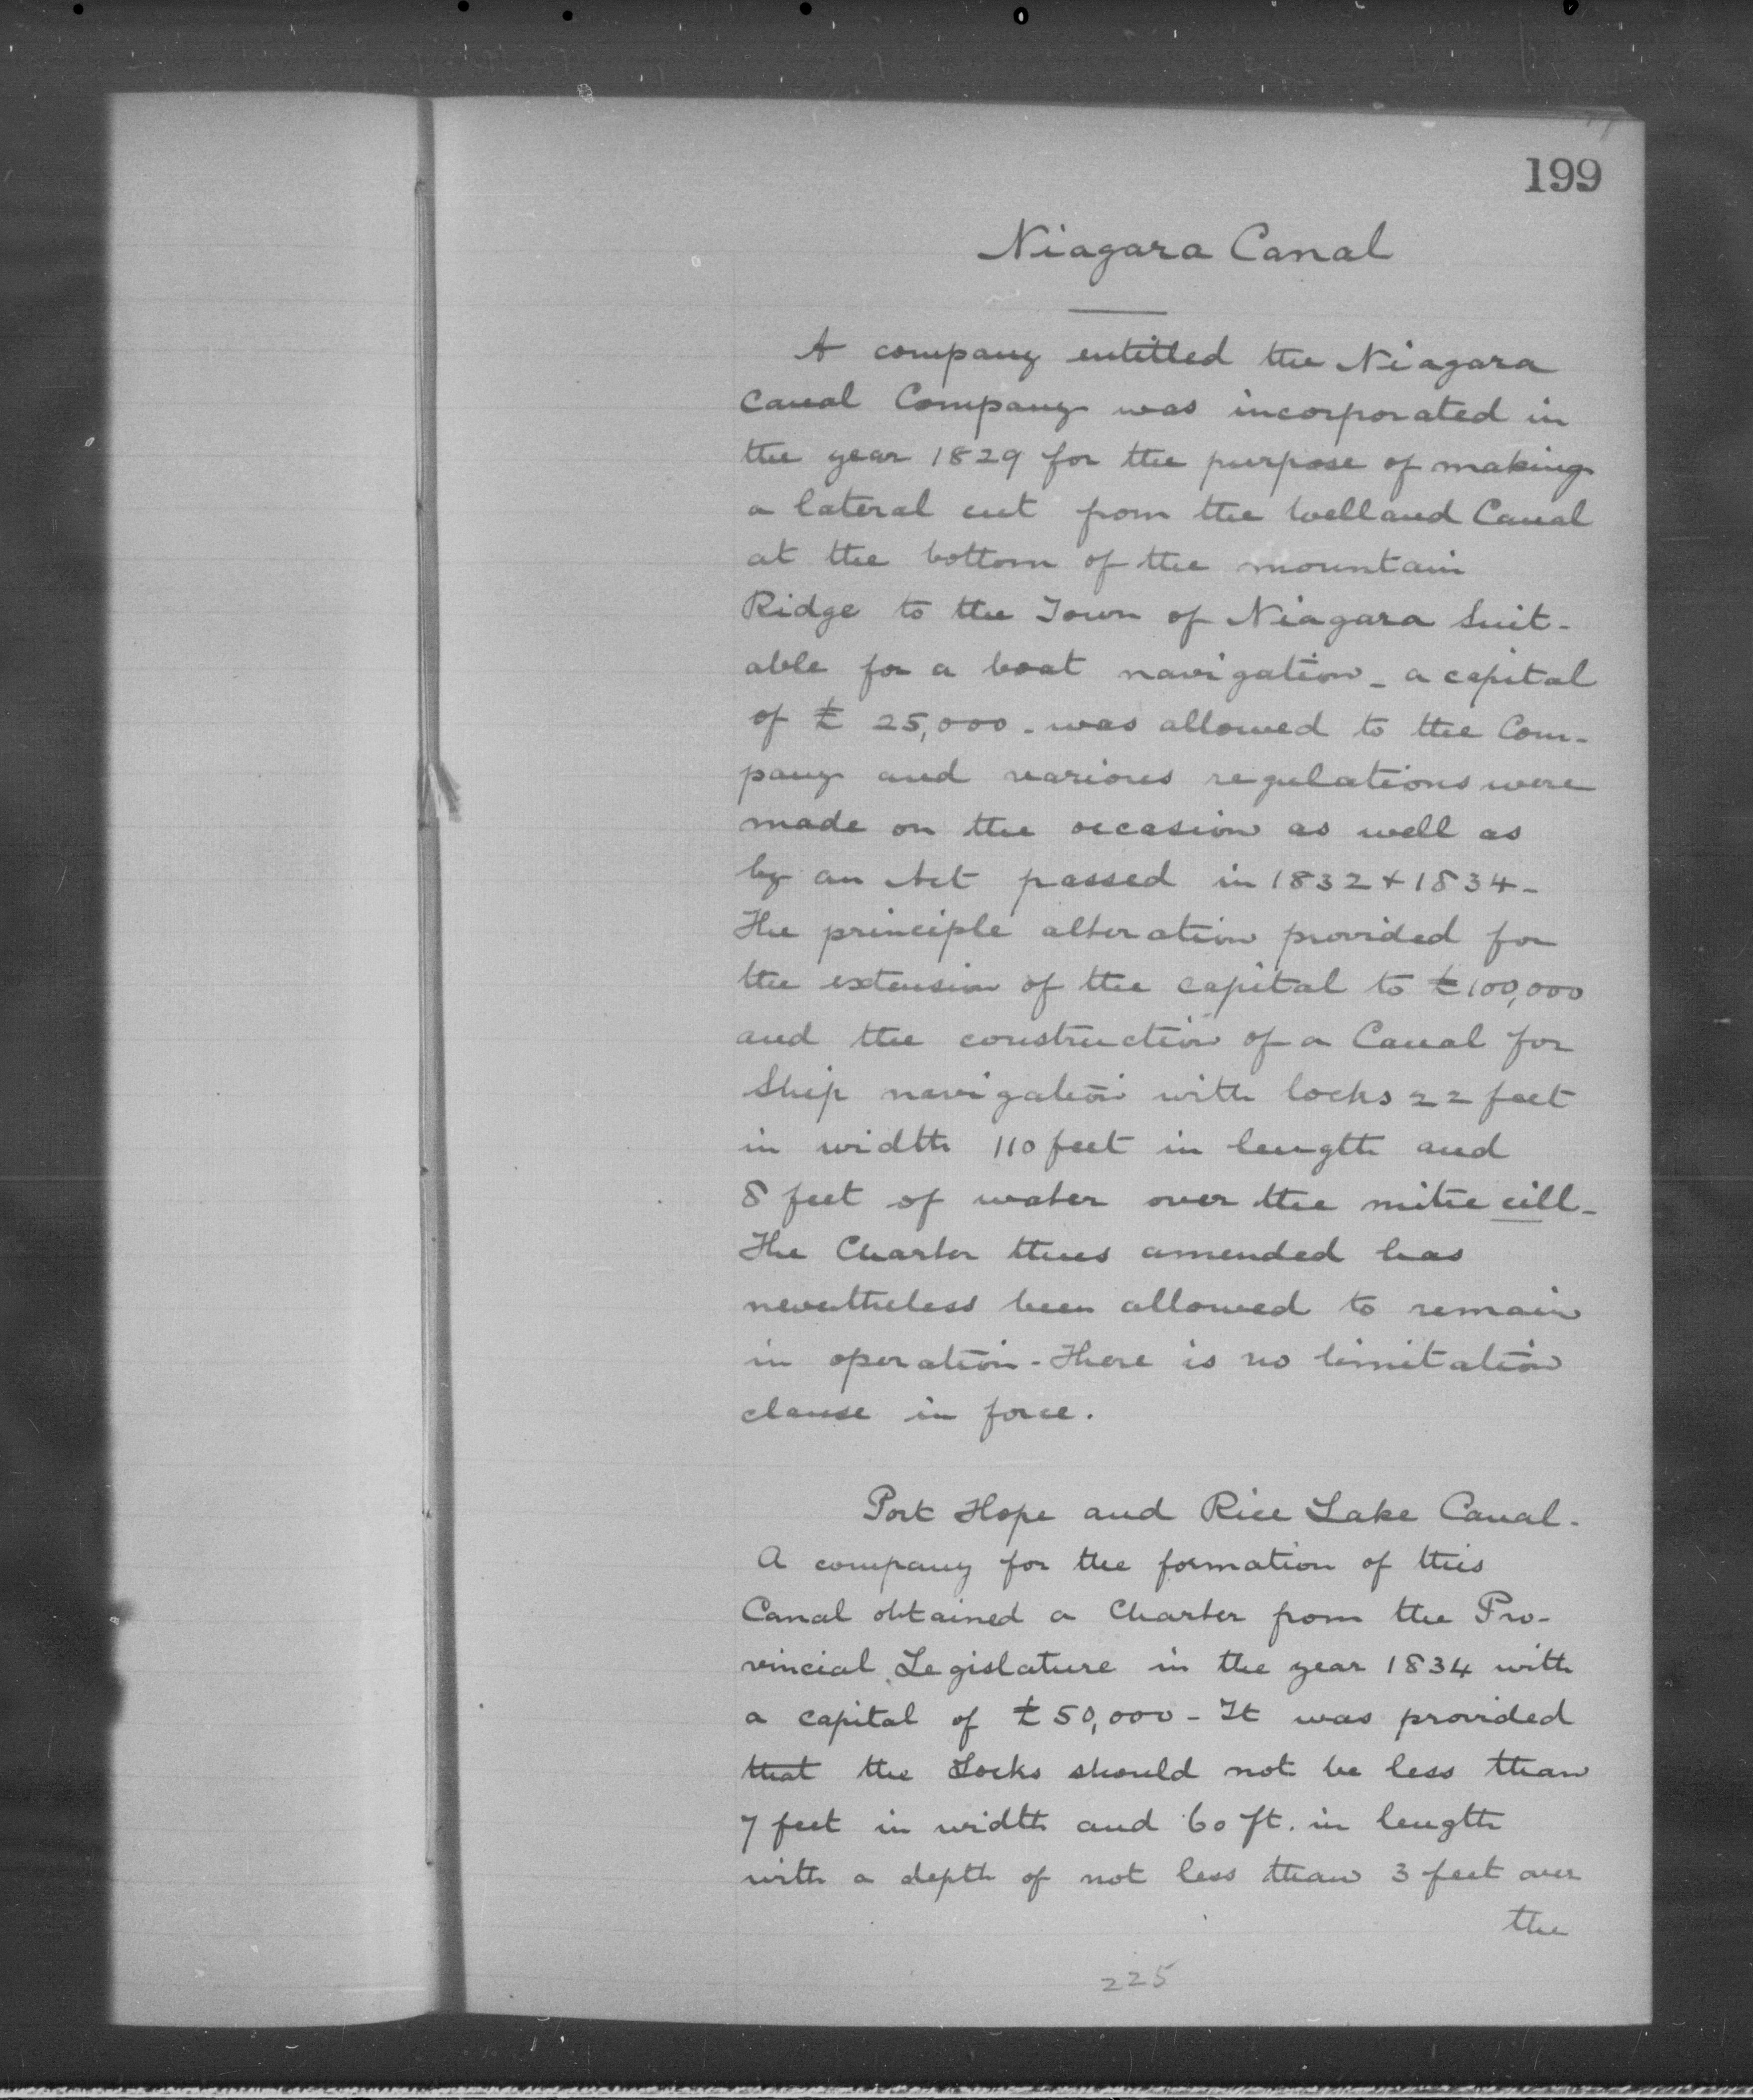 199
Niagara Canal
A company entitled the Niagara
Canal Company was incorporated in
the year 1829 for the purpose of making
a lateral cut from the Welland Canal
at the bottom of the mountain
Ridge to the Town of Niagara Suit-
able for a boat navigation - a capital
of £ 25,000 - was allowed to the Com-
pany and various regulations were
made on the occasion as well as
by an Act passed in 1832 + 1834 -
The principle alteration provided for
the extension of the capital to £100,000
and the construction of a Canal for
Ship navigation with locks 22 feet
in width 110 feet in length and
8 feet of water over the mitre cill -
The Charter thus amended has
nevertheless been allowed to remain
in operation - There is no limitation
clause in force.
Port Hope and Rice Lake Canal -
A company for the formation of this
Canal obtained a Charter from the Pro-
vincial Legislature in the year 1834 with
a capital of £50,000 - It was provided
that the Locks should not be less than
7 feet in width and 60 ft. in length
with a depth of not less than 3 feet over
the
225